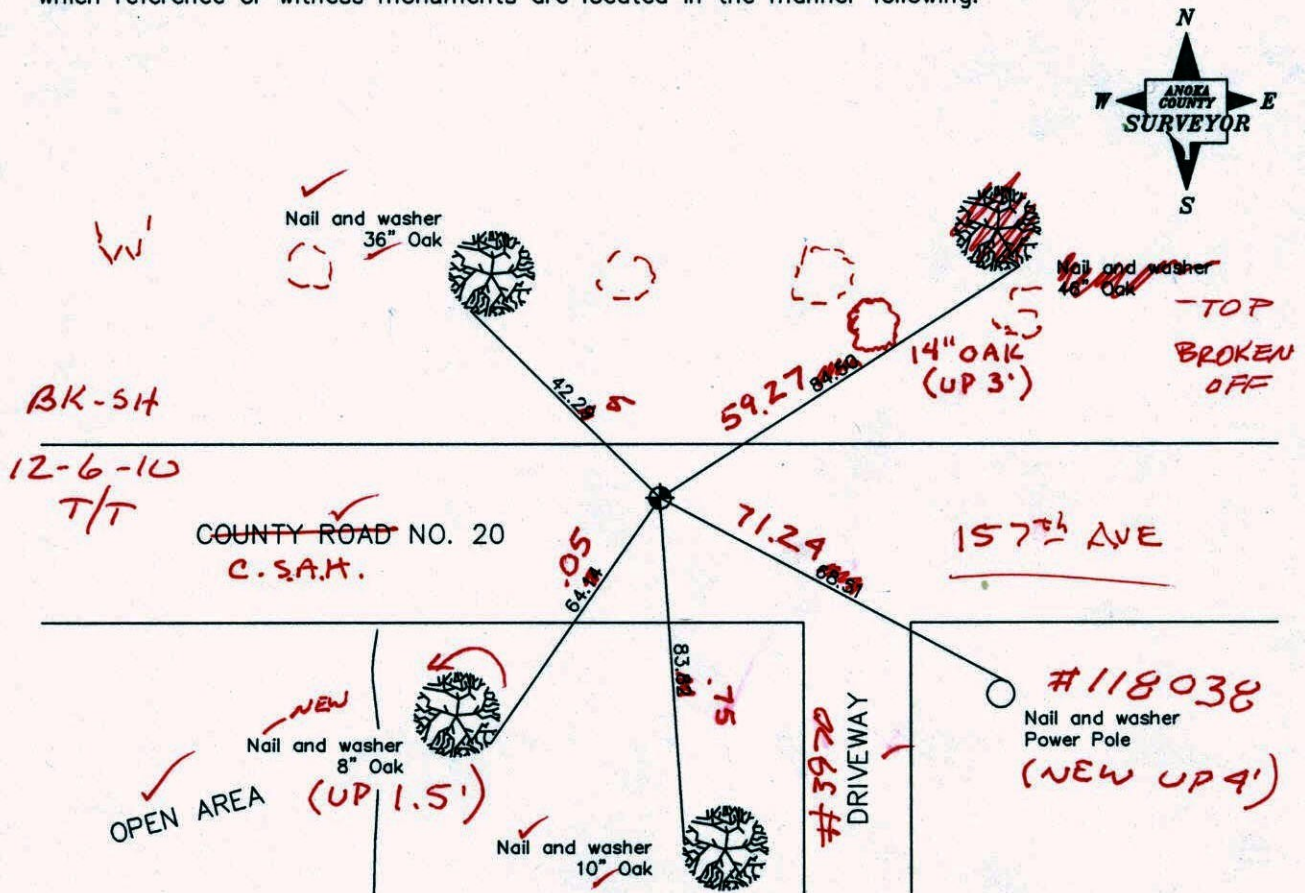 which reference or witness monuments are located in the manner following:
N
W
ANOKA
COUNTY
E
SURVEYOR
S
Nail and washer
36" Oak
Nail and washer
48" Oak
-TOP
BROKEN
OFF
14" OAK
(UP 3')
59.27
84.60
42.29
BK-SH
12-6-10
T/T
COUNTY ROAD NO. 20
C.S.A.H.
157th AVE
71.24
68.51
.05
64.14
83.82
.75
NEW
Nail and washer
8" Oak
(UP 1.5')
OPEN AREA
Nail and washer
10" Oak
#3970
DRIVEWAY
#118038
Nail and washer
Power Pole
(NEW UP 4')